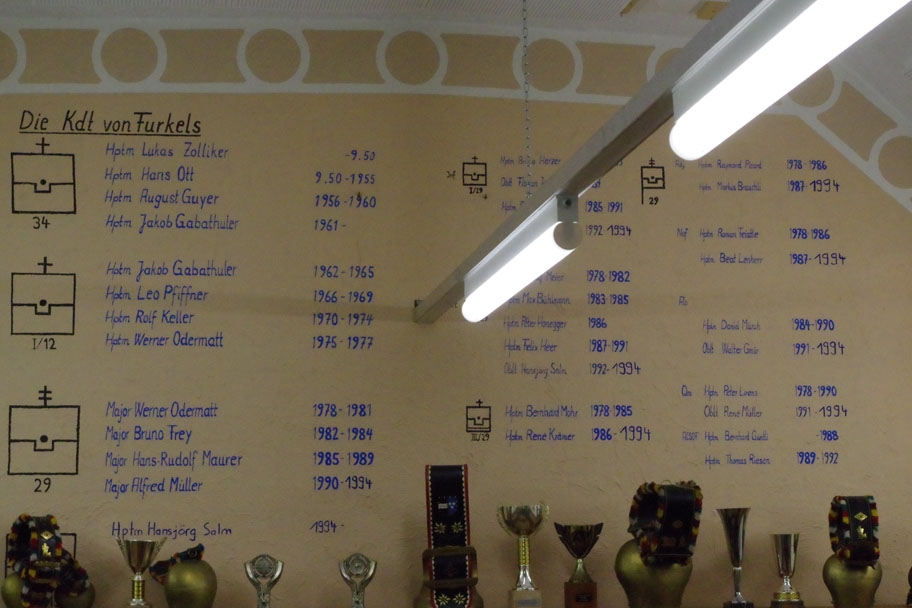 Die Kdt von Furkels
Hptm Lukas Zolliker -9.50
Hptm Hans Ott 9.50-1955
Hptm August Guyer 1956-1960
Hptm Jakob Gabathuler 1961-
34
Hptm Jakob Gabathuler 1962-1965
Hptm Leo Pfiffner 1966-1969
Hptm Rolf Keller 1970-1974
Hptm Werner Odermatt 1975-1977
I/12
Major Werner Odermatt 1978-1981
Major Bruno Frey 1982-1984
Major Hans-Rudolf Maurer 1985-1989
Major Alfred Müller 1990-1994
29
Hptm Hansjörg Salm 1994-
Hptm Herzer
Oblt
1985 1991
1992-1994
I/29
Meier 1978-1982
Hptm Max Bühlmann 1983-1985
Hptm Peter Honegger 1986
Hptm Felix Heer 1987-1991
Oblt Hansjörg Salm 1992-1994
Hptm Bernhard Mohr 1978-1985
Hptm René Krämer 1986-1994
III/29
Hptm Raymond 1978-1986
Hptm Markus 1987-1994
29
Hptm Roman 1978-1986
Hptm Beat Lenherr 1987-1994
Hptm Daniel 1984-1990
Oblt Walter 1991-1994
Qm Hptm Peter 1978-1990
Oblt René Müller 1991-1994
Hptm Bernhard -1988
Hptm Thomas Riesen 1989-1992